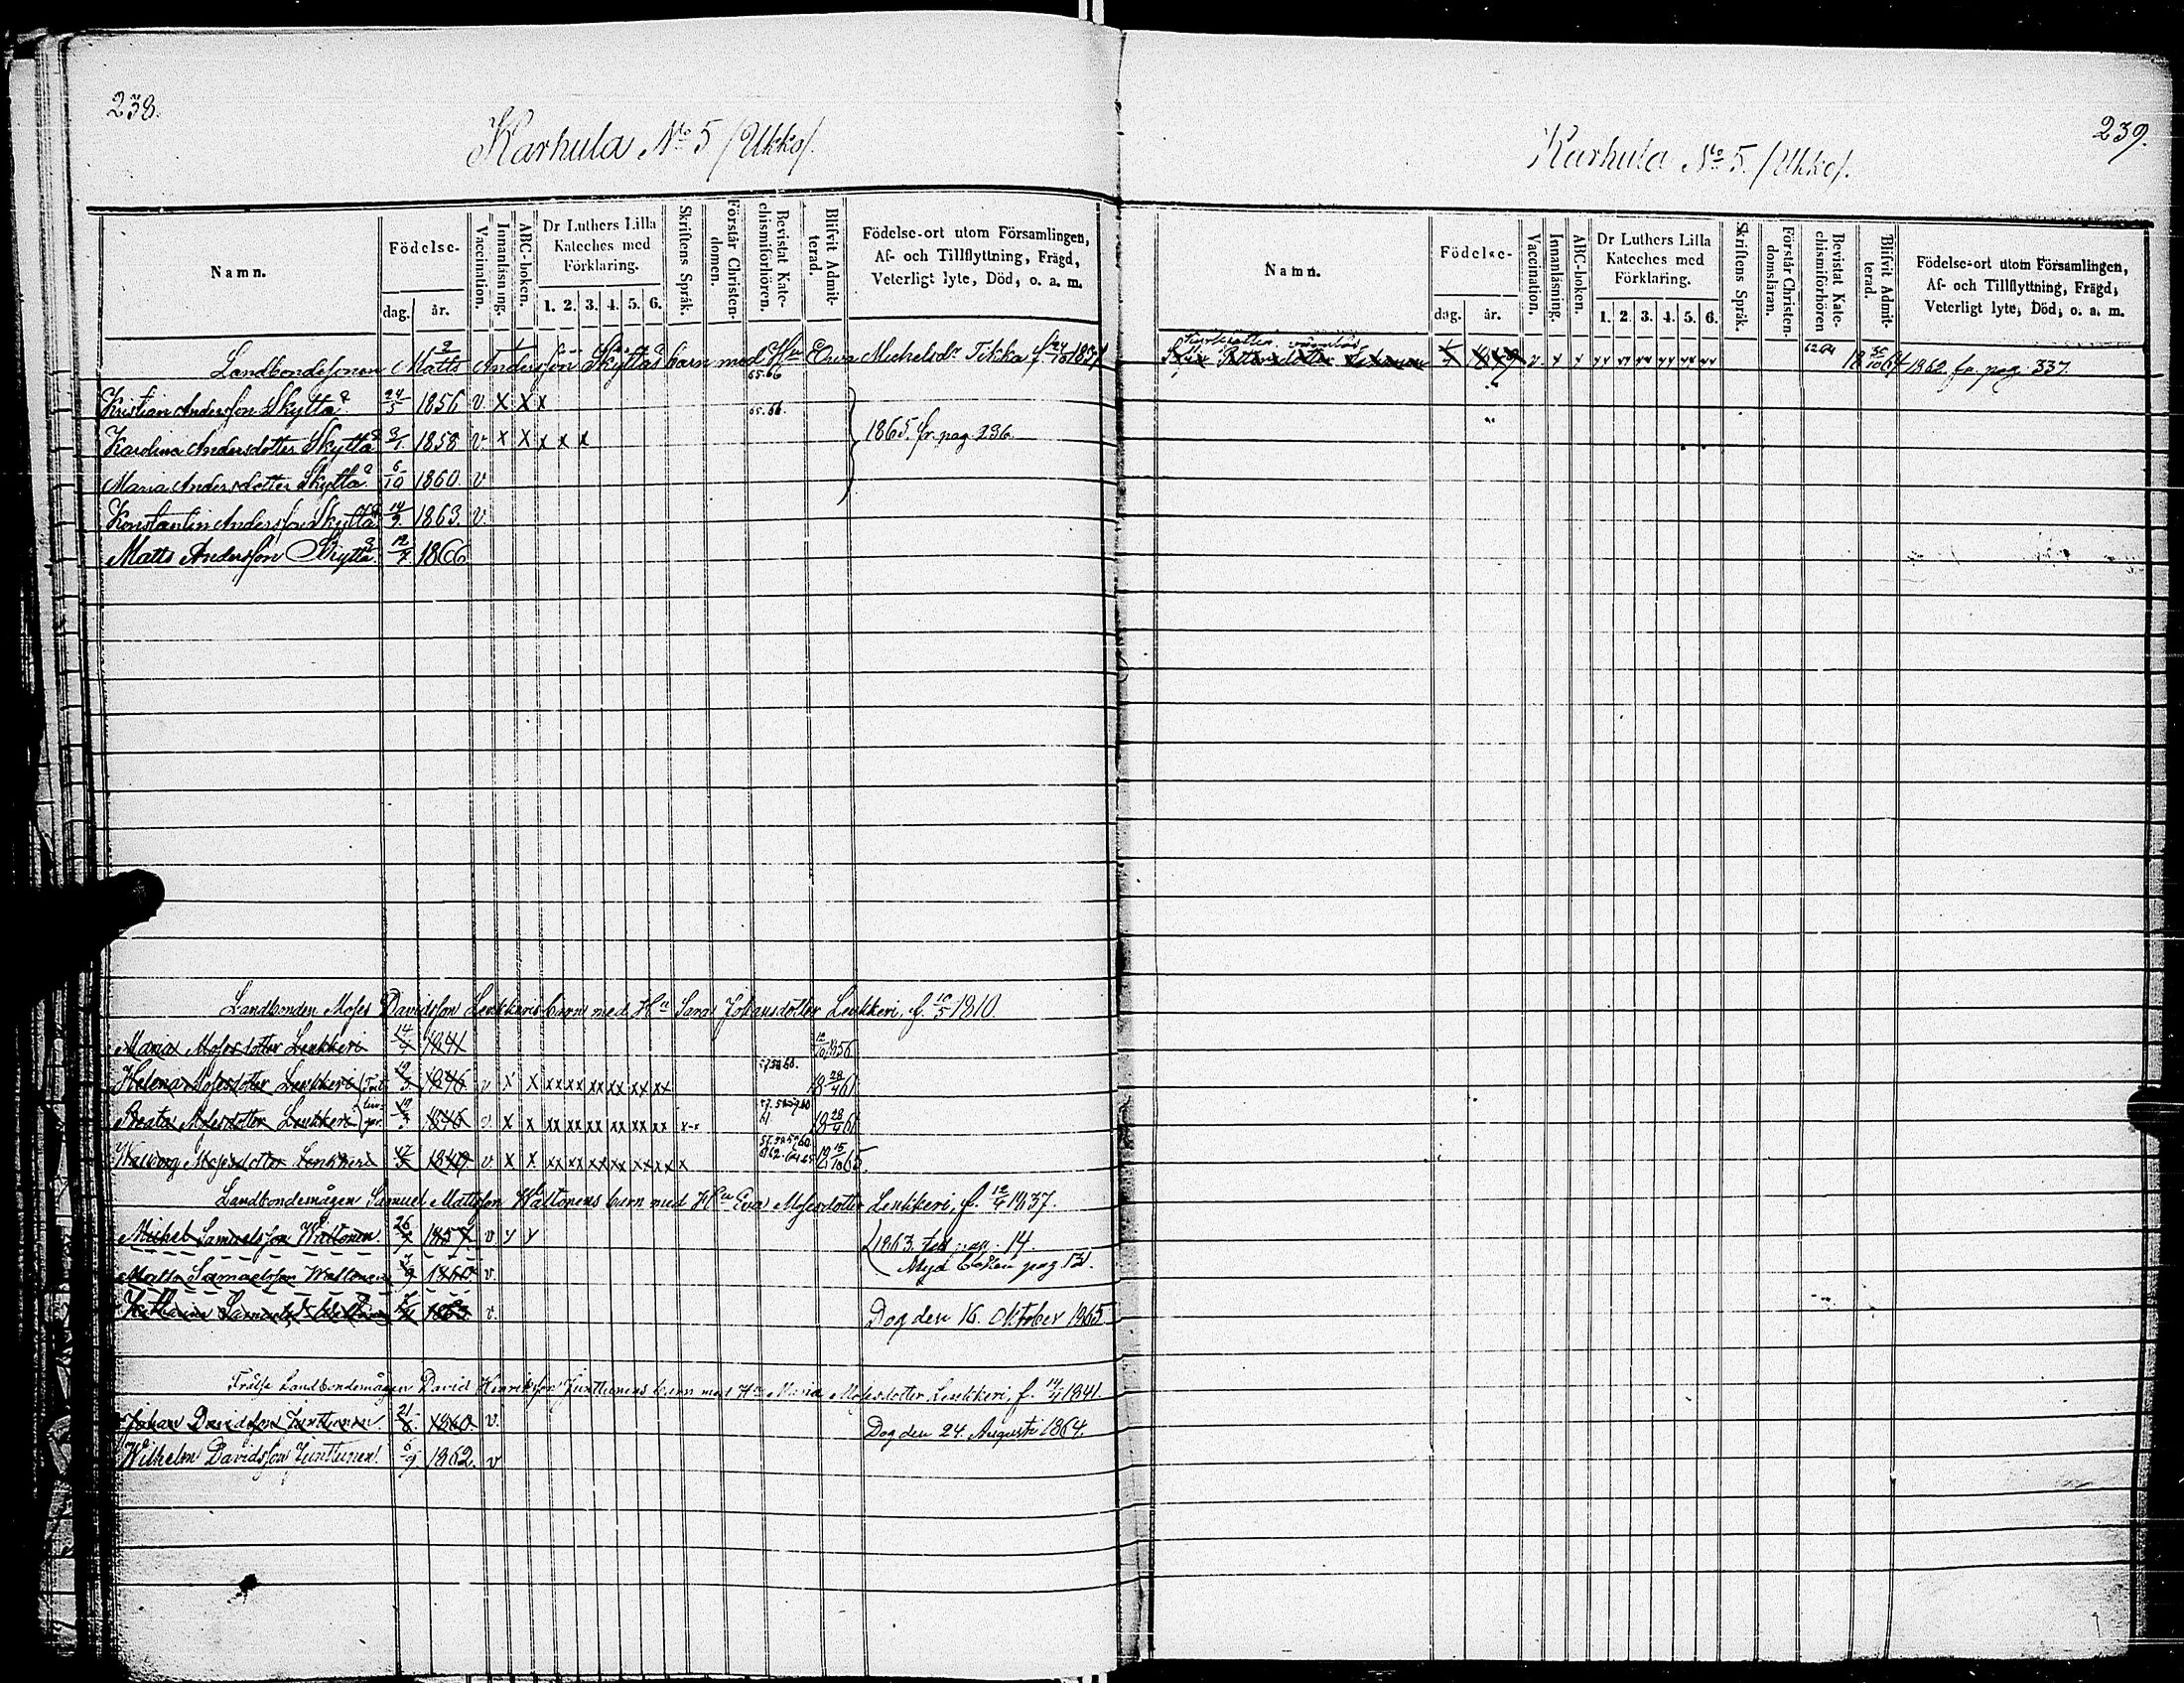 238.
Karhula No 5 /Ukko/.
Namn.
Födelse-
dag. år.
Vaccination.
Innanläsning.
ABC-boken.
Dr Luthers Lilla Kateches med Förklaring.
1. 2. 3. 4. 5. 6.
Skriftens Språk.
Förstår Christen-domen.
Bevistat Kate-chismiförhören.
Blifvit Admit-terad.
Födelse-ort utom Församlingen,
Af- och Tillflyttning, Frägd,
Veterligt lyte, Död, o. a. m.
Landbondesonen Matts Andersson Skyttäs barn med Hu Ewa Michelsdr Tikka f. 24/10 1837
Kristian Andersson Skyttä 24/5 1856 v X X x 65.66.
Karolina Andersdotter Skyttä 3/1 1858 v. x X x x x 1865. fr. pag. 236.
Maria Andersdotter Skyttä 6/10 1860 v
Konstantin Andersson Skyttä 14/9 1863. v.
Matts Andersson Skyttä 12/7 1866
Landbonden Moses Davidsson Leukkeris barn med Hu Sara Johansdotter Leukkeri, f. 10/5 1810.
Maria Mosesdotter Leukkeri 14/4 1841 12/10 1856
Helena Mosesdotter Leukkeri 19/3 1846 v x x xx xx xx xx xx xx 18 28/4 61
Beata Mosesdotter Leukkeri 19/3 1846 v x x xx xx xx xx xx xx x-x 18 28/4 61
Walborg Mosesdotter Leukkeri 1849 v x x xx xx xx xx xx xx x 18 15/10 65.
Landbondemågen Samuel Mattsson Wattonens barn med Hu Eva Mosesdotter Leukkeri, f. 12/4 1837.
Michel Samuelsson Wattonen. 26/7 1857. v y y 1863. till pag. 14.
Matts Samuelsson Wattonen 1860 v. Nya boken pag 131.
Katharina Samuelsdr Wattonen 1863. v. Dog den 16. Oktober 1865.
Frälse Landbondemågen David Henriksson Junttunens barn med Hu Maria Mosesdotter Leukkeri, f. 14/4 1841.
Johan Davidsson Junttunen. 21/8. 1860. v. Dog den 24. Augusti 1864.
Wilhelm Davidsson Junttunen. 5/9. 1862. v
239.
Karhula No 5. /Ukko/.
Namn.
Födelse-
dag. år.
Vaccination.
Innanläsning.
ABC-boken.
Dr Luthers Lilla Kateches med Förklaring.
1. 2. 3. 4. 5. 6.
Skriftens Språk.
Förstår Christen-domsläran.
Bevistat Kate-chismiförhören
Blifvit Admit-terad.
Födelse-ort utom Församlingen,
Af- och Tillflyttning, Frägd,
Veterligt lyte, Död, o. a. m.
Pettersdotter 1849 v. y y yy yy yy yy yy yy 62 64 18 30/10 64 1862 fr. pag. 337.